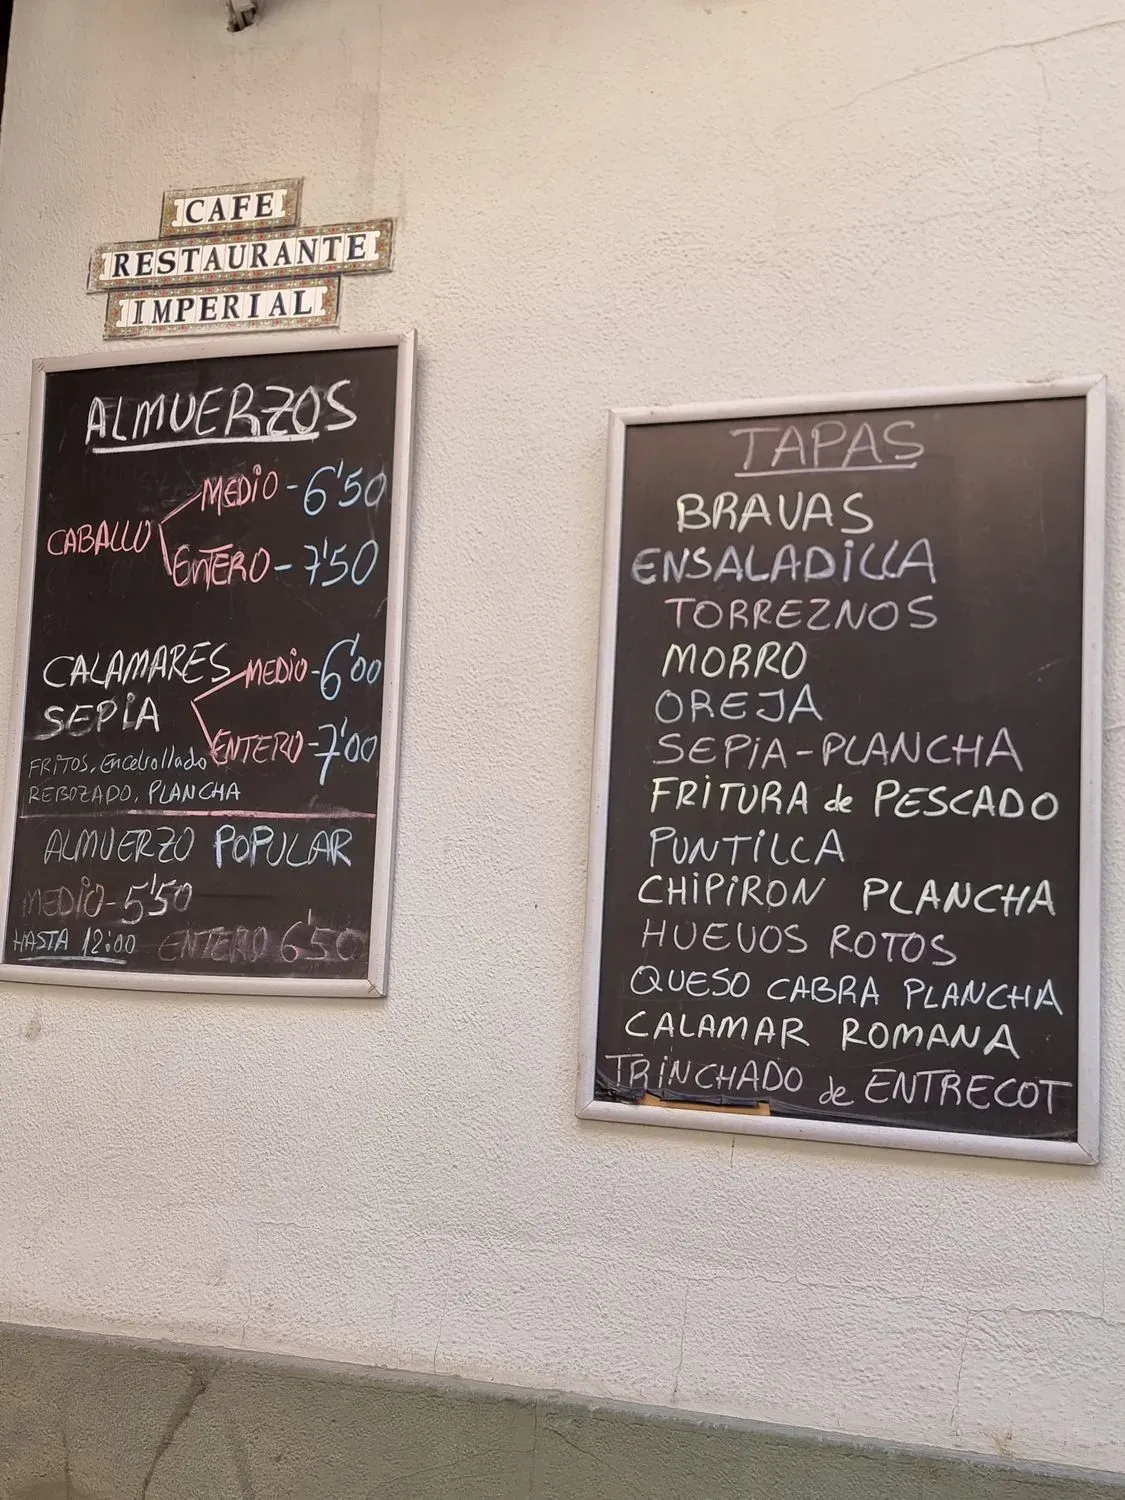 CAFE
RESTAURANTE
IMPERIAL
ALMUERZOS
CABALLO MEDIO - 6'50
ENTERO - 7'50
CALAMARES MEDIO - 6'00
SEPIA
ENTERO - 7'00
FRITOS, Encebollado
REBOZADO, PLANCHA
ALMUERZO POPULAR
MEDIO - 5'50
HASTA 12:00 ENTERO 6'50
TAPAS
BRAVAS
ENSALADILLA
TORREZNOS
MORRO
OREJA
SEPIA-PLANCHA
FRITURA de PESCADO
PUNTILLA
CHIPIRON PLANCHA
HUEVOS ROTOS
QUESO CABRA PLANCHA
CALAMAR ROMANA
TRINCHADO de ENTRECOT